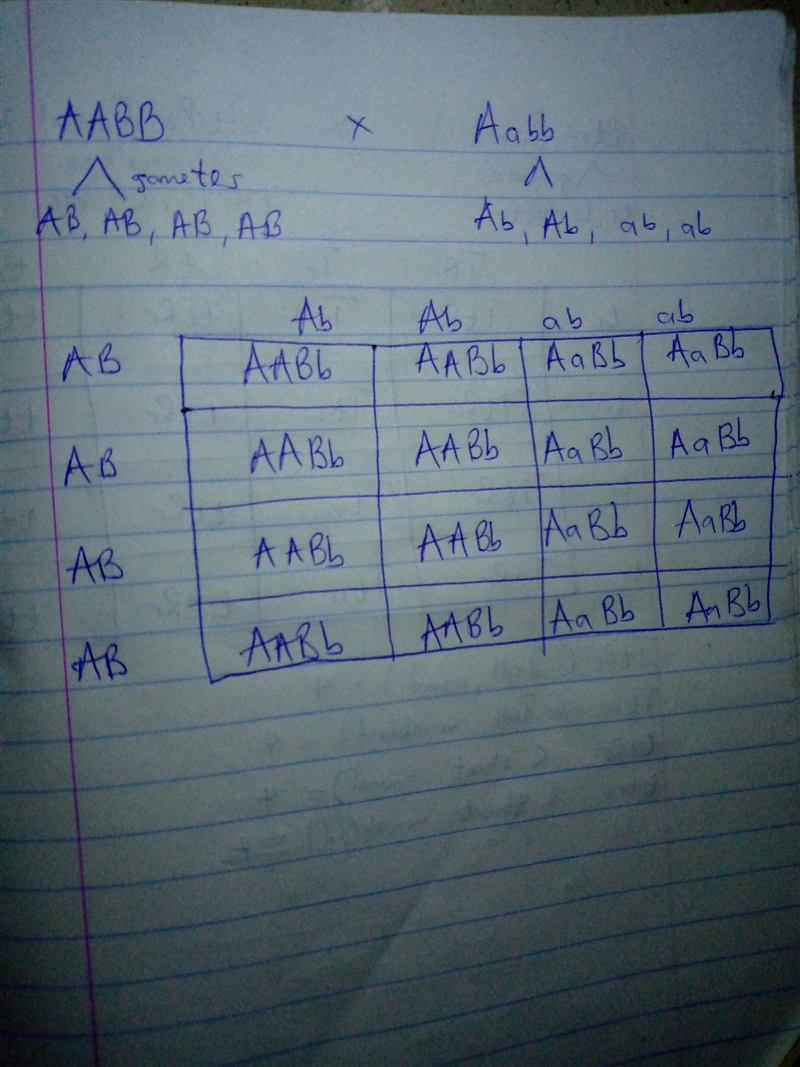 AABB × Aabb
gametes
AB, AB, AB, AB Ab, Ab, ab, ab
Ab Ab ab ab
AB AABb AABb AaBb AaBb
AB AABb AABb AaBb AaBb
AB AABb AABb AaBb AaBb
AB AABb AABb AaBb AaBb